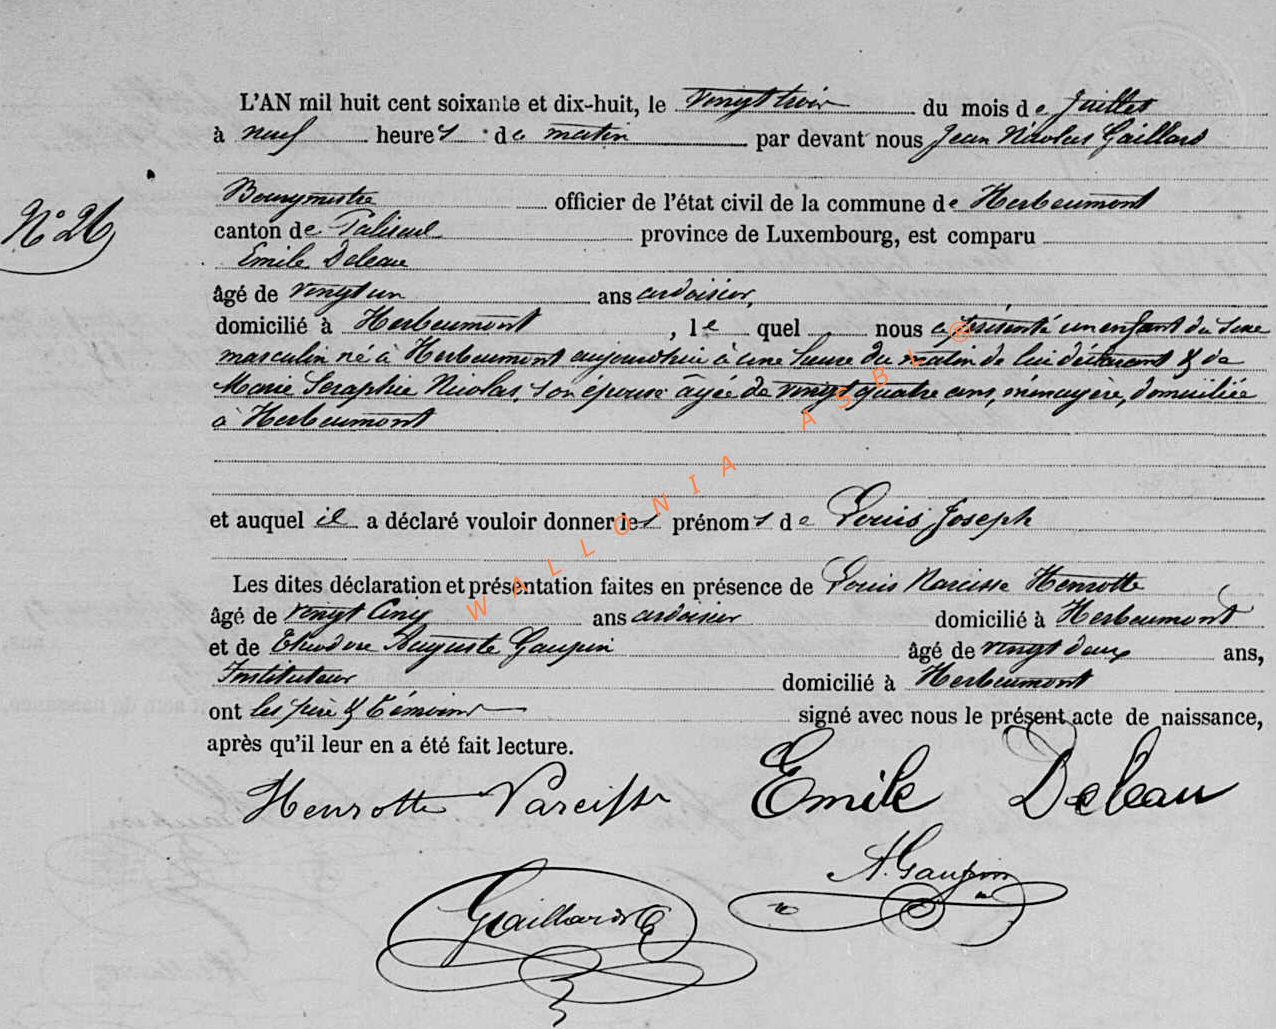 L'AN mil huit cent soixante et dix-huit, le vingt trois du mois de Juillet
à neuf heures de matin par devant nous Jean Nicolas Gaillard
N° 26
Bourgmestre officier de l'état civil de la commune de Herbeumont
canton de Paliseul province de Luxembourg, est comparu
Emile Deleau
âgé de vingt un ans ardoisier,
domicilié à Herbeumont, le quel nous a présenté un enfant du sexe
masculin né à Herbeumont aujourdhui à une heure du matin de lui déclarant & de
Marie Seraphie Nicolas, son épouse âgée de vingt quatre ans, ménagère, domiciliée
à Herbeumont
et auquel il a déclaré vouloir donner les prénoms de Louis Joseph
Les dites déclaration et présentation faites en présence de Louis Narcisse Henrotte
âgé de vingt Cinq ans ardoisier domicilié à Herbeumont
et de Théodore Auguste Gaupin âgé de vingt deux ans,
Instituteur domicilié à Herbeumont
ont les père & témoins signé avec nous le présent acte de naissance,
après qu'il leur en a été fait lecture.
Henrotte Narcisse Emile Deleau
A. Gaupin
Gaillard
WALLONIA ASBL ®